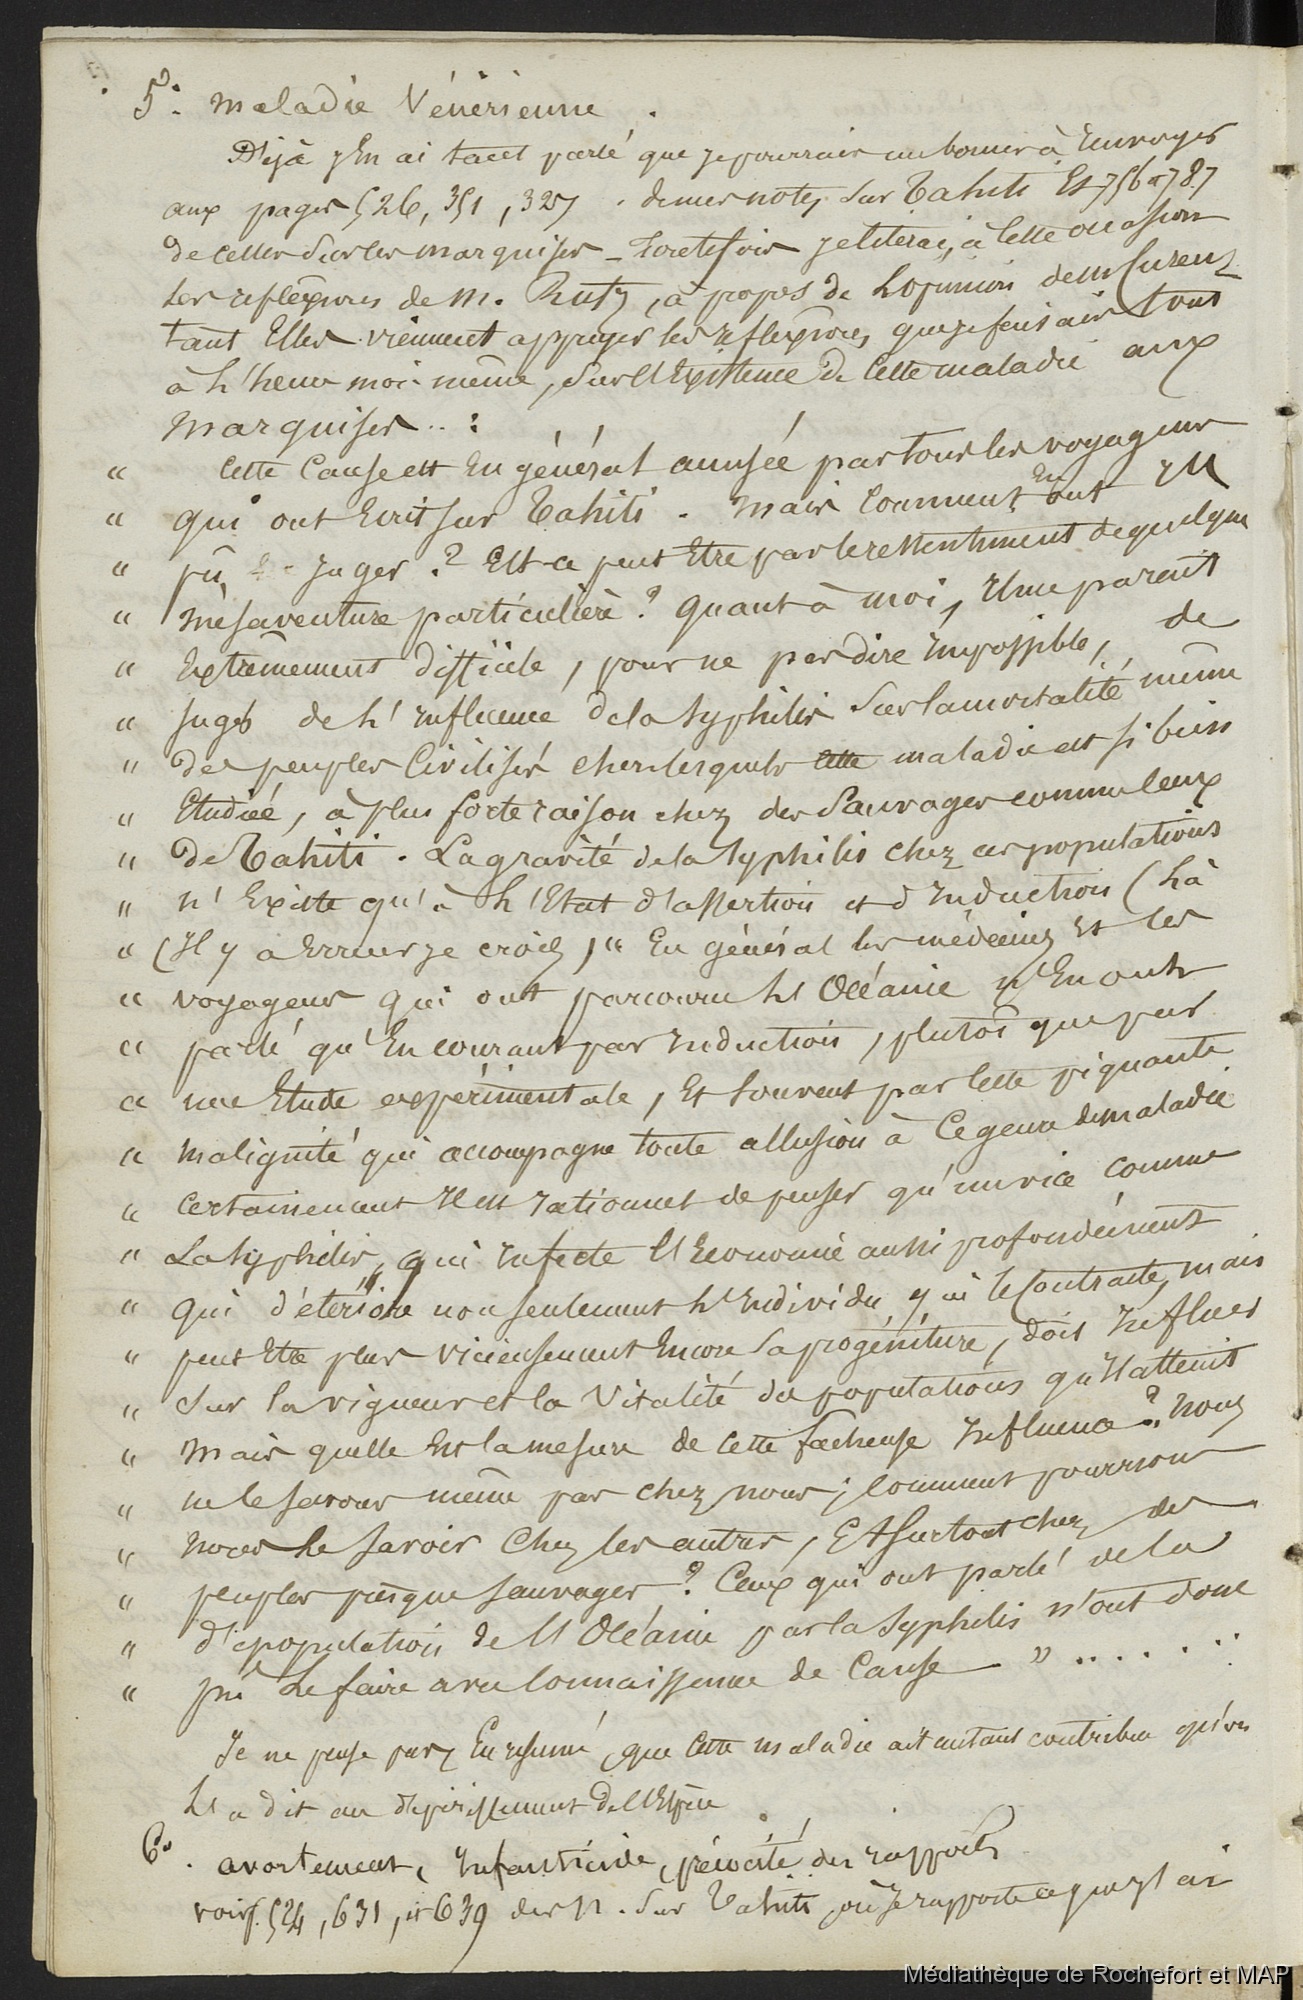 5º. maladie Vénérienne.
Déjà j'En ai tant parlé que je pourrais me borner à Renvoyer
aux pages 526, 351, 327 . de mes notes sur Tahiti Et 756 à 787
de celles sur les marquises _ toutefois je citerai, à cette occasion
les réflexions de M. Rufz, à propos de L'opinion de
tant Elles viennent appuyer les réflexions, que je faisais tout
à L'heure moi-même, sur l'Existence de Cette maladie aux
Marquises .. :
" Cette Cause est En général accusée par tous les voyageurs
" qui ont Ecrit sur Tahiti . Mais Comment En ont Ils
" pû Juger ? Est-ce peut Etre par le ressentiment de quelque
" mésaventure particulière ? Quant à moi, Il me parait
" Extrêmement difficile, pour ne pas dire Impossible, de
" Juger de L'Influence de la Syphilis sur la mortalité même
" des peuples Civilisés chez lesquels cette maladie est si bien
" Etudiée, à plus forte raison chez des Sauvages comme Ceux
" de Tahiti . La gravité de la Syphilis chez ces populations
" n'Existe qu'à L'Etat d'assertion et d'Induction (Là
" (Il y a Erreur je crois) " En général les médecins Et les
" voyageurs qui ont parcouru L'Océanie n'En ont
" parlé qu'En courant par Induction, plutôt que par
" une Etude expérimentale, Et souvent par Cette piquante
" malignité qui accompagne toute allusion à Ce genre de maladie
" Certainement Il est rationnel de penser qu'un vice comme
" La Syphilis, qui Infecte l'Economie aussi profondément
" qui détériore non seulement L'Individu qui le Contracte, mais
" peut Etre plus vicieusement Encore sa progéniture, doit Influer
" sur la vigueur et la Vitalité des populations qu'Il atteint
" Mais quelle Est la mesure de cette fâcheuse Influence ? Nous
" ne le savons même pas chez nous ; Comment pourrions
" nous Le savoir Chez les autres, Et surtout chez des
" peuples presque sauvages ? Ceux qui ont parlé de la
" dépopulation de l'Océanie par la Syphilis n'ont donc
" pû Le faire avec Connaissance de Cause _ " ......
Je ne pense pas, En résumé, que Cette maladie ait autant contribué qu'on
L'a dit au dépérissement de l'Espèce.
6º. avortement, Infanticide, précocité des rapports
voir p. 524, 631, et 639 des N. sur Tahiti, où Je rapporte ce que j'ai
Médiathèque de Rochefort et MAP